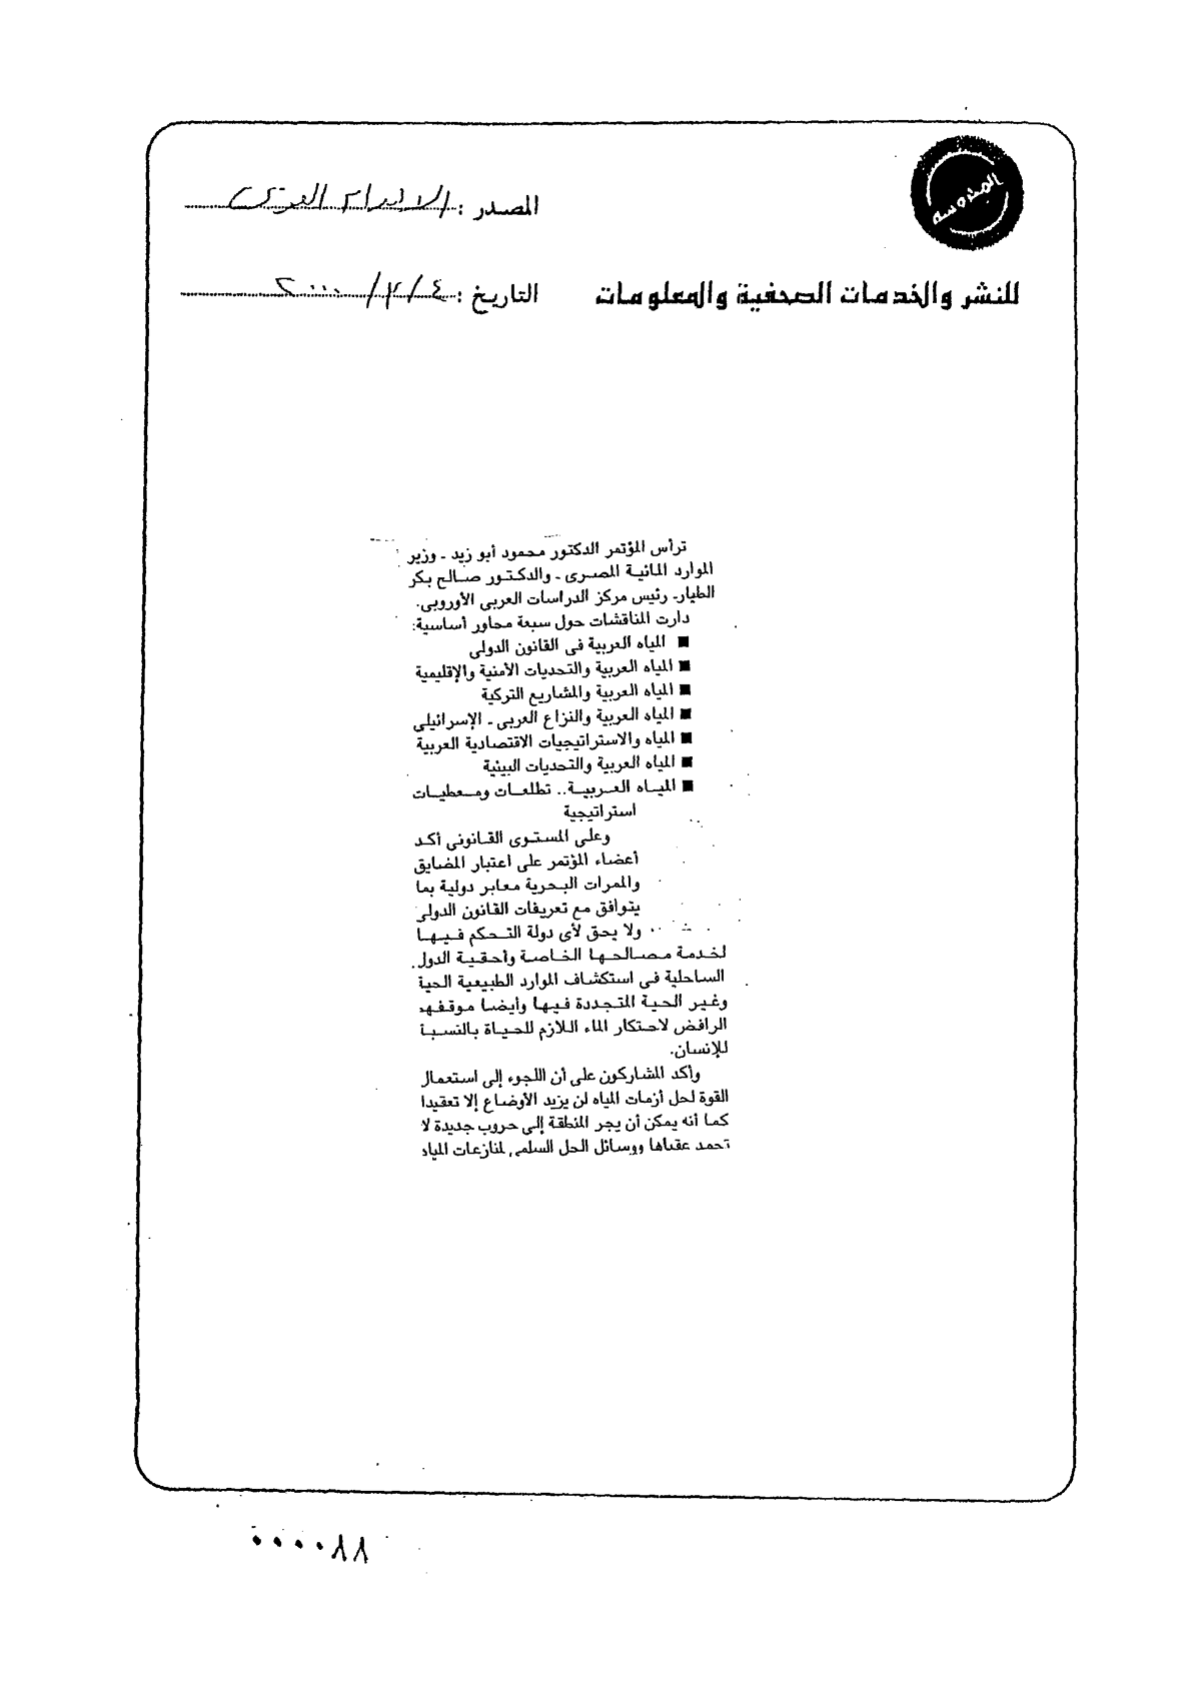 المحروسة
المصدر : الأهرام العربى
للنشر والخدمات الصحفية والمعلومات
التاريخ : ٤/٣/٢٠٠٠
ترأس المؤتمر الدكتور محمود أبو زيد ـ وزير
الموارد المائية المصرى ـ والدكتور صالح بكر
الطيار ـ رئيس مركز الدراسات العربى الأوروبى.
دارت المناقشات حول سبعة محاور أساسية:
■ المياه العربية فى القانون الدولى
■ المياه العربية والتحديات الأمنية والإقليمية
■ المياه العربية والمشاريع التركية
■ المياه العربية والنزاع العربى ـ الإسرائيلى
■ المياه والاستراتيجيات الاقتصادية العربية
■ المياه العربية والتحديات البيئية
■ المياه العربية.. تطلعات ومعطيات
استراتيجية
وعلى المستوى القانونى أكد
أعضاء المؤتمر على اعتبار المضايق
والممرات البحرية معابر دولية بما
يتوافق مع تعريفات القانون الدولى
ولا يحق لأى دولة التحكم فيها
لخدمة مصالحها الخاصة وأحقية الدول
الساحلية فى استكشاف الموارد الطبيعية الحية
وغير الحية المتجددة فيها وأيضا موقفهم
الرافض لاحتكار الماء اللازم للحياة بالنسبة
للإنسان.
وأكد المشاركون على أن اللجوء إلى استعمال
القوة لحل أزمات المياه لن يزيد الأوضاع إلا تعقيدا
كما أنه يمكن أن يجر المنطقة إلى حروب جديدة لا
تحمد عقباها ووسائل الحل السلمى لمنازعات المياه
٠٠٠٠٨٨